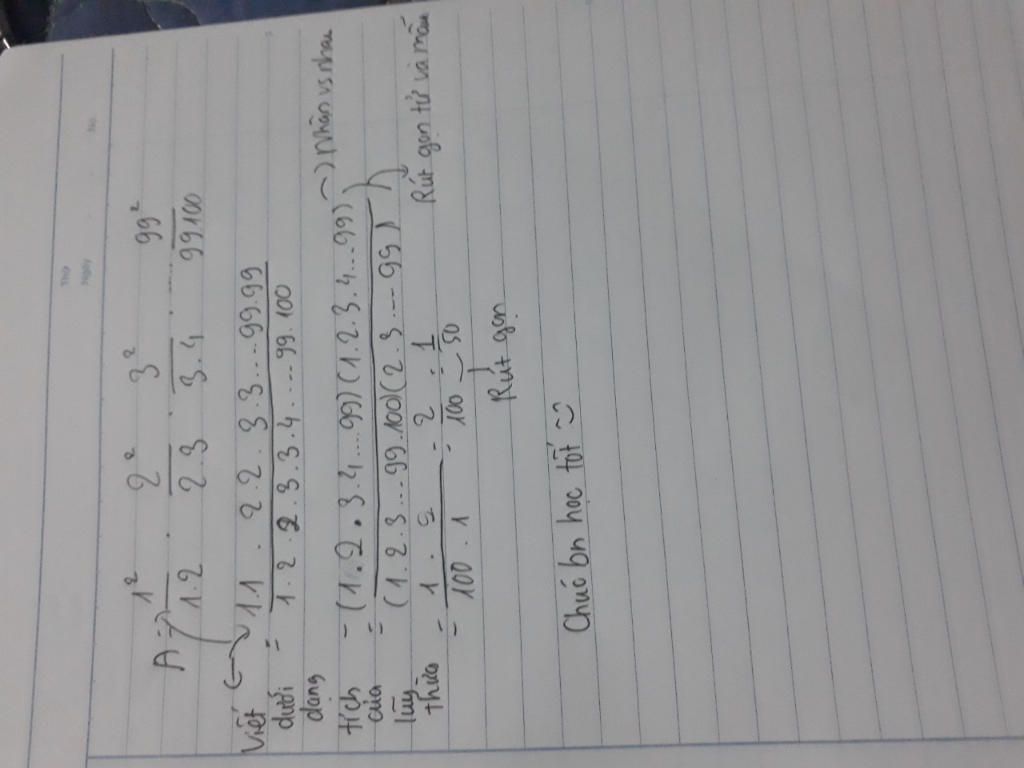 Thứ
Ngày No.
A = 1² / 1.2 . 2² / 2.3 . 3² / 3.4 ..... 99² / 99.100
Viết dưới dạng tích của lũy thừa
= 1.1 . 2.2 . 3.3 .... 99.99 / 1.2.2.3.3.4 ..... 99.100
= (1.2.3.4...99)(1.2.3.4...99) / (1.2.3...99.100)(2.3....99) → nhân vs nhau
Rút gọn tử và mẫu
= 1.2 / 100.1 = 2 / 100 = 1 / 50
Rút gọn
Chúc bn học tốt